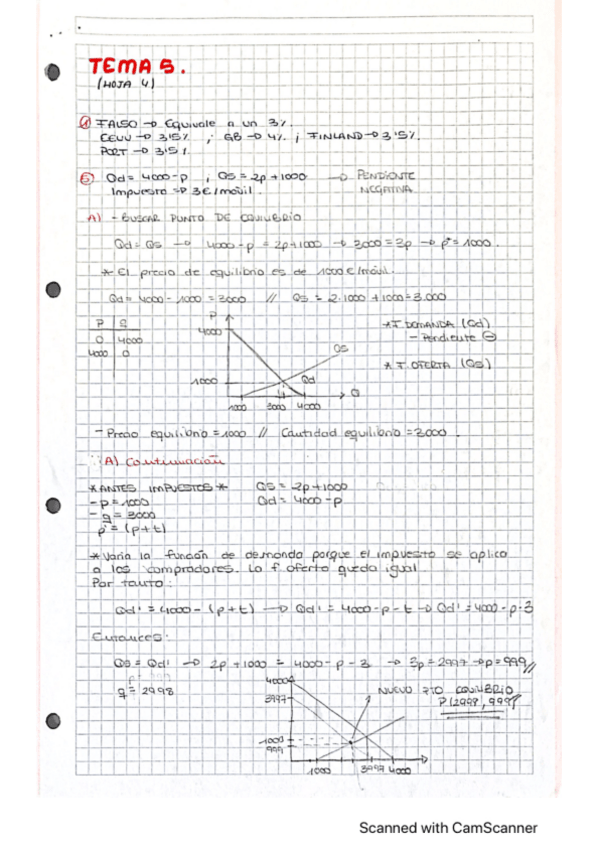 TEMA 5.
(HOJA 4)
④ FALSO → Equivale a un 3%.
EEUU → 3'5% ; GB → 4% ; FINLAND → 3'5%.
PORT → 3'5%.
⑤ Qd = 4000-p ; QS = 2p+1000 → PENDIENTE NEGATIVA
Impuesto → 3€/móvil.
A) - BUSCAR PUNTO DE EQUILIBRIO
Qd = QS → 4000-p = 2p+1000 → 3000 = 3p → p* = 1000.
* El precio de equilibrio es de 1000€/móvil.
Qd = 4000 - 1000 = 3000 // QS = 2·1000 + 1000 = 3.000
P q
0 4000
4000 0
P
4000
1000
QS
Qd
Q
1000 3000 4000
* F. DEMANDA (Qd)
- Pendiente ⊖
* F. OFERTA (QS)
- Precio equilibrio = 1000 // Cantidad equilibrio = 3000.
A) Continuación
* ANTES IMPUESTOS * QS = 2p+1000
- p = 1000 Qd = 4000-p
- q = 3000
p' = (p+t)
* Varía la función de demanda porque el impuesto se aplica
a los compradores. La f. oferta queda igual.
Por tanto:
Qd' = 4000 - (p+t) → Qd' = 4000-p-t → Qd' = 4000-p-3
Entonces:
QS = Qd' → 2p+1000 = 4000-p-3 → 3p = 2997 → p = 999 //
q = 2998
4000
3997
1000
999
1000 3997 4000
NUEVO PTO EQUILIBRIO
P(2998, 999)
Scanned with CamScanner